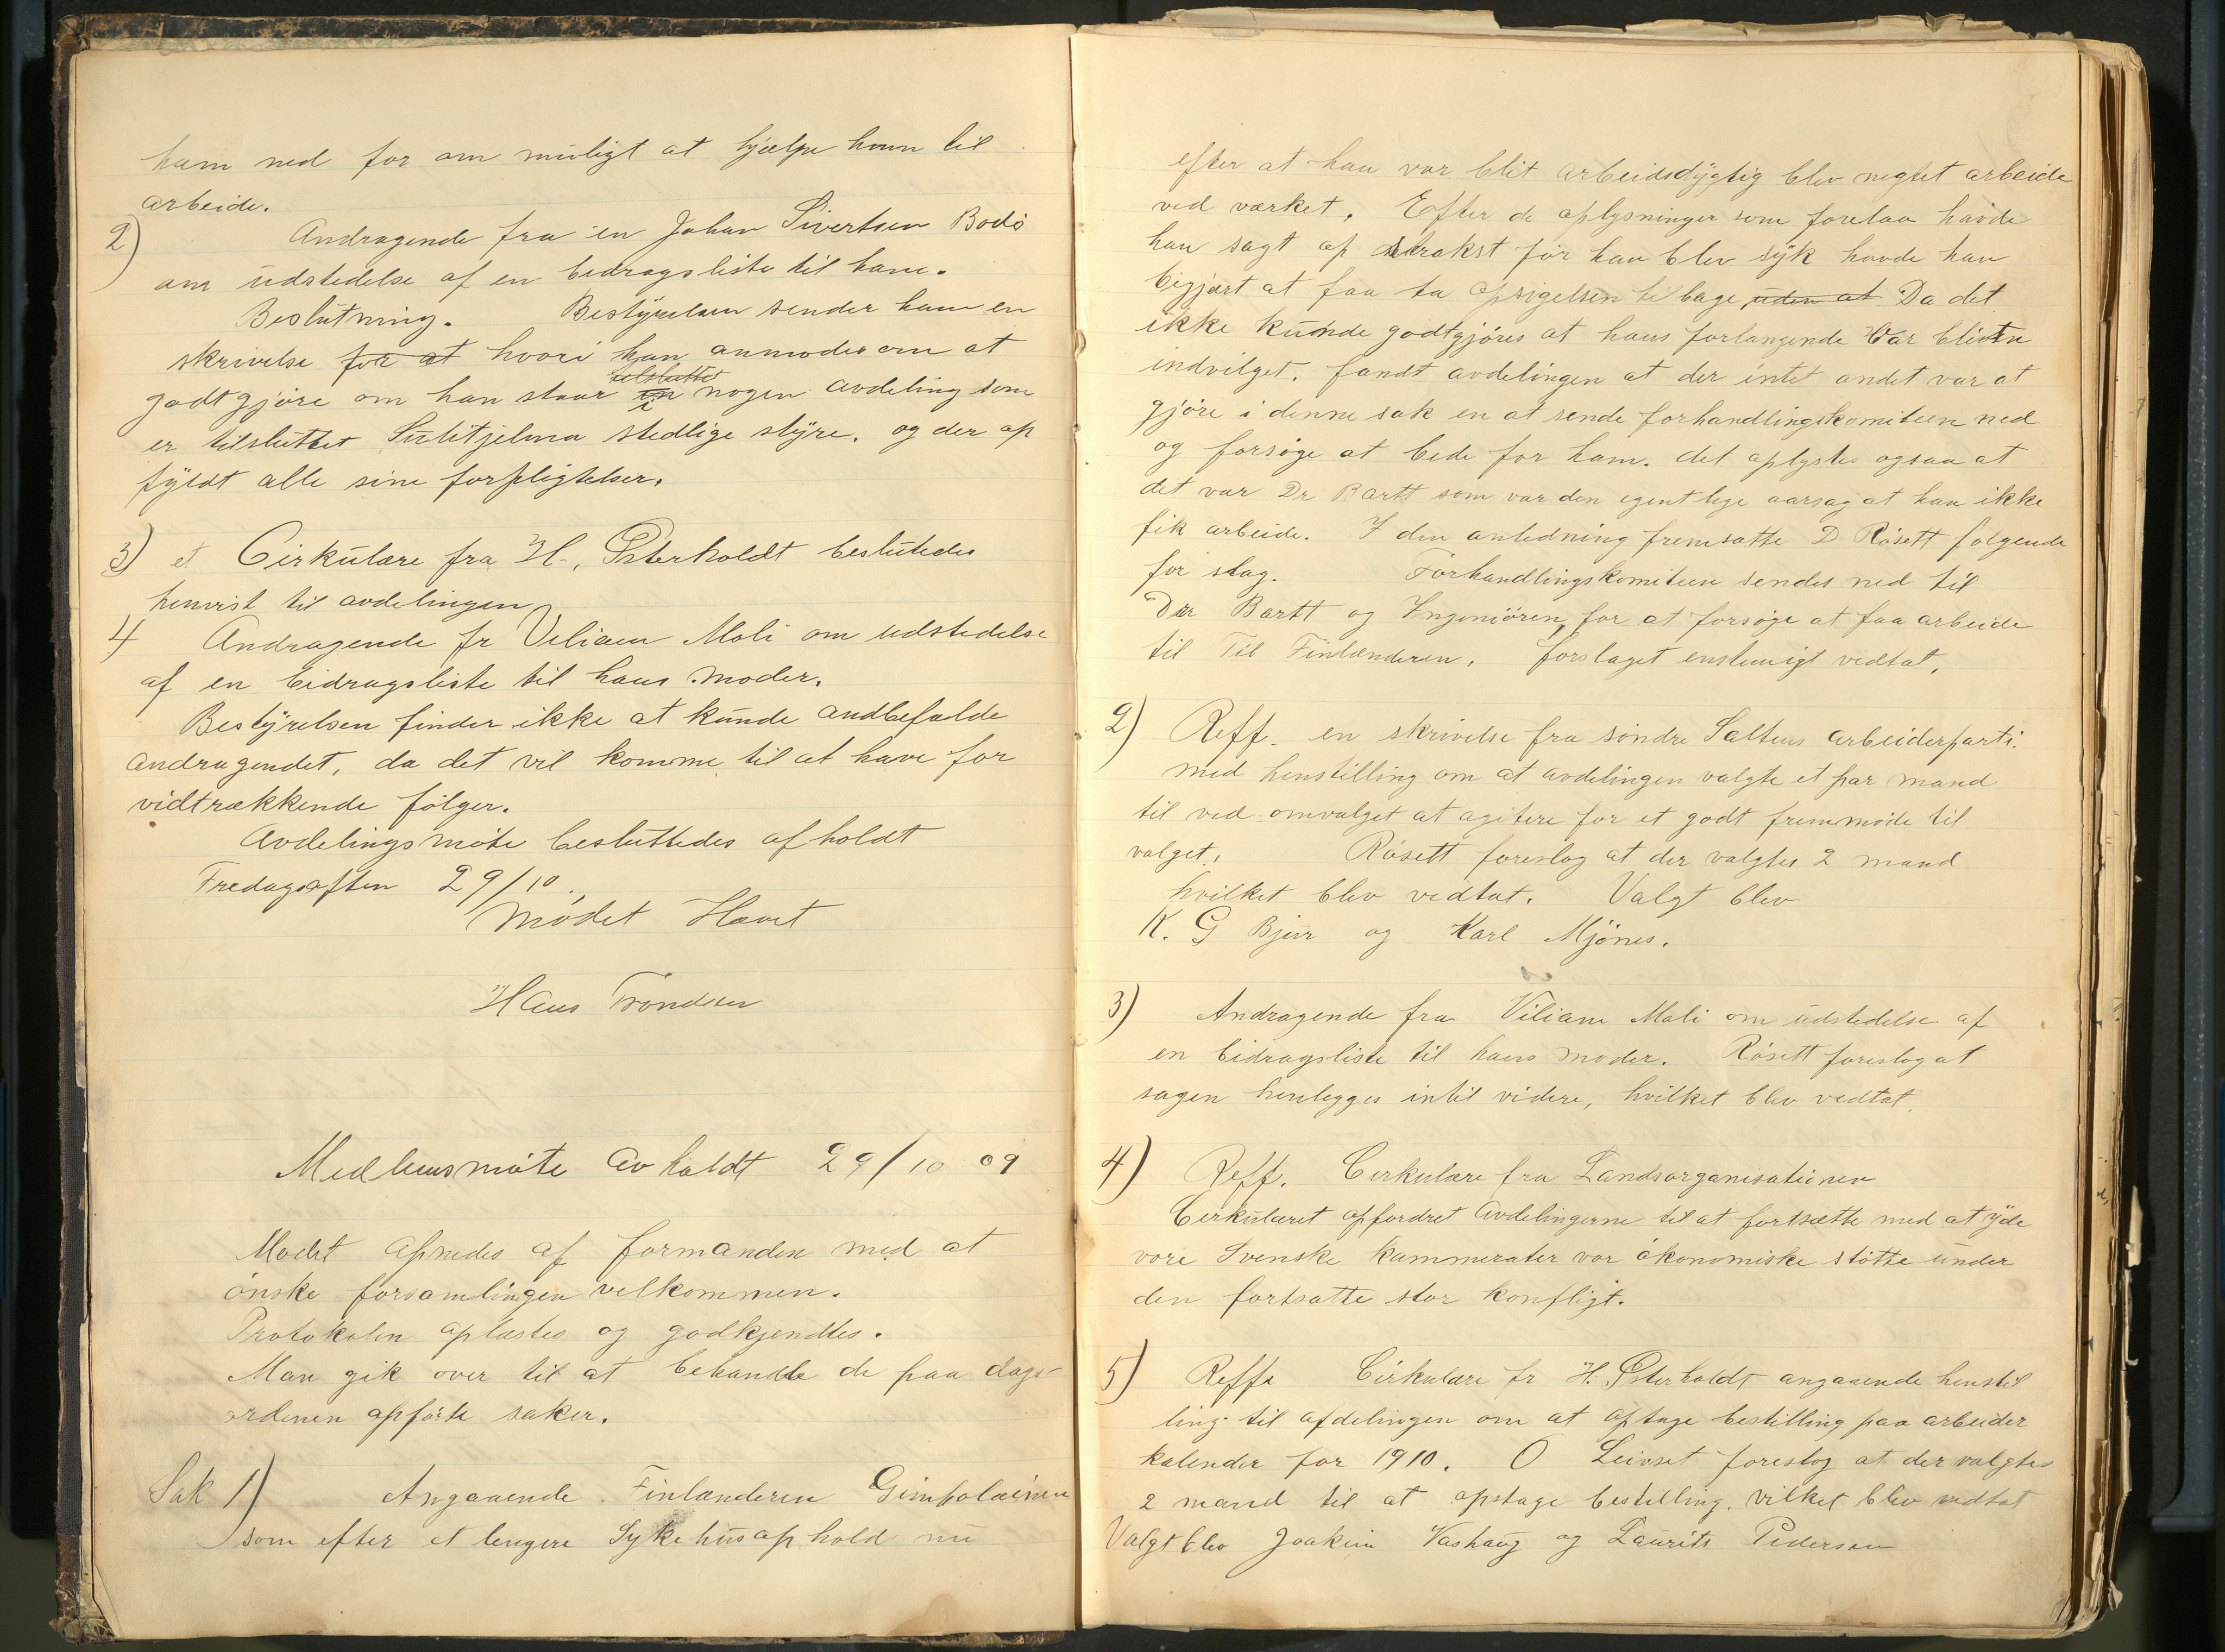 ham ned for om muligt at hjælpe ham til
arbeide.
2) Andragende fra en Johan Sivertsen Bodö
om udstedelse af en bidragsliste til ham.
Beslutning. Bestyrelsen sender ham en
skrivelse for at hvori han anmodes om at
godtgjöre om han staar i tilsluttet nogen avdeling som
er tilsluttet Sulitjelma stedlige styre. og der op
fyldt alle sine forpligtelser.
3) et Cirkulære fra H. Østerholdt besluttedes
henvist til avdelingen
4 Andragende fr Viliam Moli om udstedelse
af en bidragsliste til hans moder.
Bestyrelsen finder ikke at kunde andbefalde
andragendet, da det vil komme til at have for
vidtrækkende fölger.
Avdelingsmöte besluttedes afholdt
Fredagsaften 29/10.
Mödet Hævet
Hans Trondsen
Medlemsmöte avholdt 29/10 09
Mödet åpnedes af formanden med at
önske forsamlingen velkommen.
Protokolen oplæstes og godkjendtes.
Man gik over til at behandle de paa dags-
ordenen opförte saker.
Sak 1) Angaaende Finlænderen Gimpolainen
som efter et lengere Sykehusophold nu
efter at han var blit arbeidsdygtig blev negtet arbeide
ved værket. Efter de oplysninger som forelaa havde
han sagt op strakst för han blev syk havde han
begjært at faa ta opsigelsen tilbage uden at Da det
ikke kunde godtgjöres at hans forlangende var bleven
indvilget. fandt avdelingen at der intet andet var at
gjöre i denne sak en at sende forhandlingskomiteen ned
og forsöge at bede for ham. det oplystes ogsaa at
det var Dr Bartt som var den egentlige aarsag at han ikke
fik arbeide. I den anledning fremsatte D Rösett fölgende
for slag. Forhandlingskomiteen sendes ned til
Dr Bartt og Ingeniören, for at forsöge at faa arbeide
til Til Finlænderen. forslaget enstemigt vedtat.
2) Reff. en skrivelse fra söndre Saltens arbeiderparti.
med henstilling om at avdelingen valgte et par mand
til ved omvalget at agitere for et godt fremmöde til
valget. Rösett foreslog at der valgtes 2 mand
hvilket blev vedtat. Valgt blev
K. G Bjur og Karl Mjönes.
3) Andragende fra Viliam Moli om udstedelse af
en bidragsliste til hans moder. Rösett foreslog at
sagen henlegges intil videre, hvilket blev vedtat.
4) Reff. Cirkulære fra Landsorganisationen
Cirkulæret opfordret Avdelingerne til at fortsætte med at yde
vore Svenske kammerater vor ökonomiske stötte under
den fortsatte stor konfligt.
5) Reffe Cirkulære fr H. Østerholdt angaaende henstil
ling til afdelingen om at optage bestilling paa arbeider
kalender for 1910. O Leivset foreslog at der valgtes
2 mand til at opstage bestilling. vilket blev vedtat
Valgt blev Joakim Vashaug og Laurits Pedersen